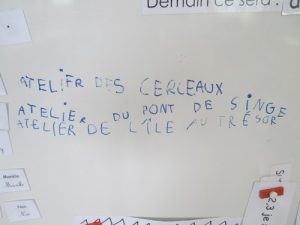 Demain ce sera :
ATELIER DES CERCEAUX
ATELIER DU PONT DE SINGE
ATELIER DE L'ÎLE AU TRÉSOR